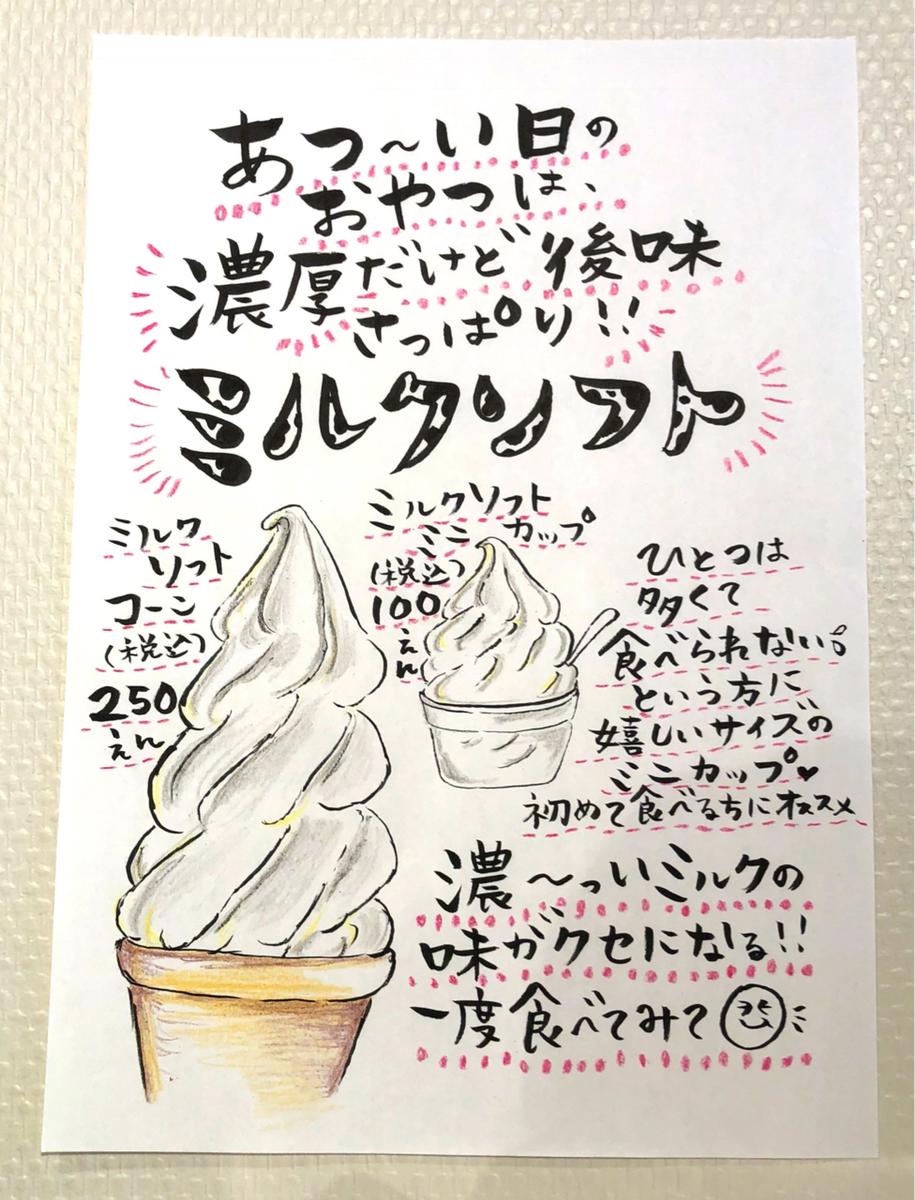 あつ〜い日の
おやつは、
濃厚だけど後味
さっぱり!!
ミルクソフト
ミルク
ソフト
コーン
(税込)
250
えん
ミルクソフト
ミニカップ
(税込)
100
えん
ひとつは
多くて
食べられない。
という方に
嬉しいサイズの
ミニカップ♥
初めて食べる方にオススメ
濃〜っいミルクの
味がクセになる!!
一度食べてみて